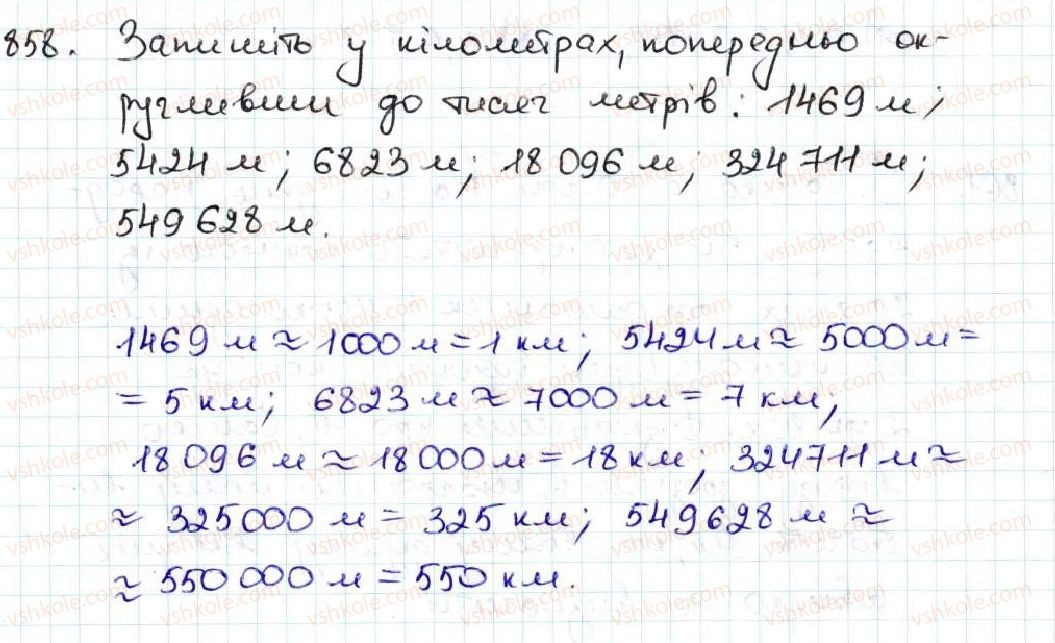 858. Запишіть у кілометрах, попередньо ок-
ругливши до тисяч метрів: 1469 м;
5424 м; 6823 м; 18 096 м; 324 711 м;
549 628 м.
1469 м ≈ 1000 м = 1 км; 5424 м ≈ 5000 м =
= 5 км; 6823 м ≈ 7000 м = 7 км;
18 096 м ≈ 18 000 м = 18 км; 324711 м ≈
≈ 325000 м = 325 км; 549628 м ≈
≈ 550 000 м = 550 км.